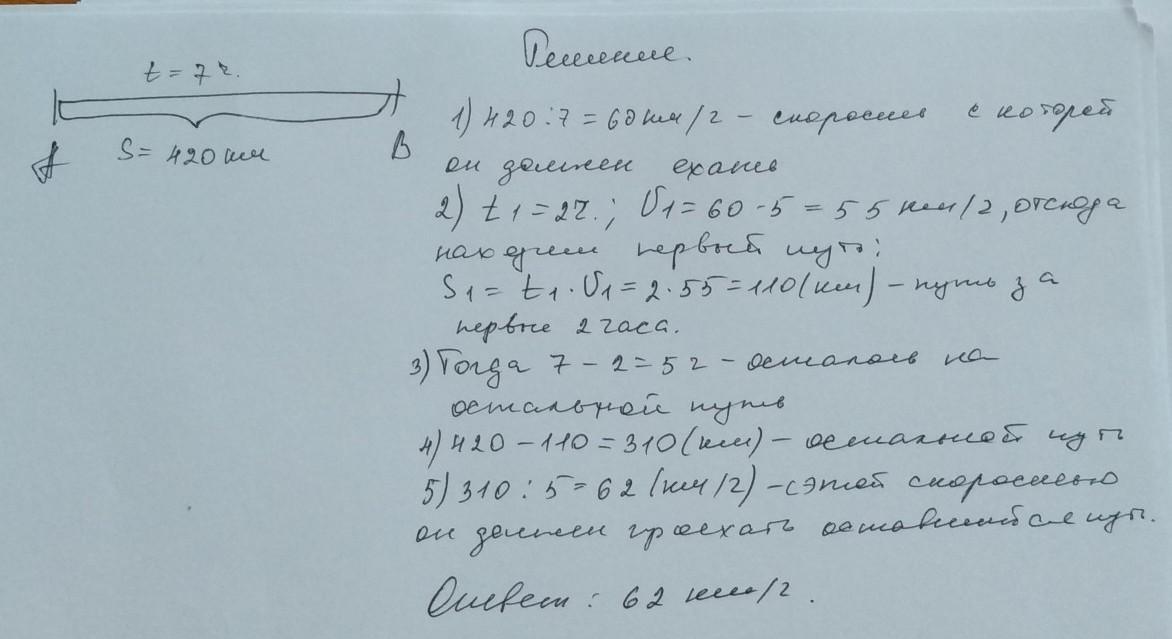 Решение.
t = 7 ч.
S = 420 км
A
B
1) 420 : 7 = 60 км/ч – скорость с которой
он должен ехать
2) t1 = 2ч.; U1 = 60 - 5 = 55 км/ч, отсюда
находим первый путь:
S1 = t1 · U1 = 2 · 55 = 110 (км) – путь за
первые 2 часа.
3) Тогда 7 – 2 = 5 ч – осталось на
остальной путь
4) 420 – 110 = 310 (км) – остальной путь
5) 310 : 5 = 62 (км/ч) – с этой скоростью
он должен проехать оставшийся путь.
Ответ: 62 км/ч.